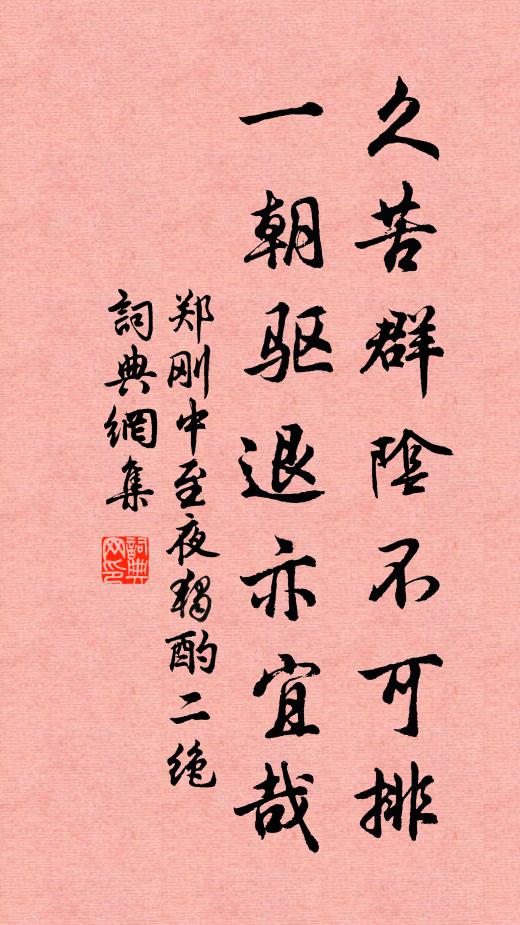 久苦群陰不可排
一朝驱退亦宜哉
郑刚中至夜獨酌二绝
詞典網集
詞典网印